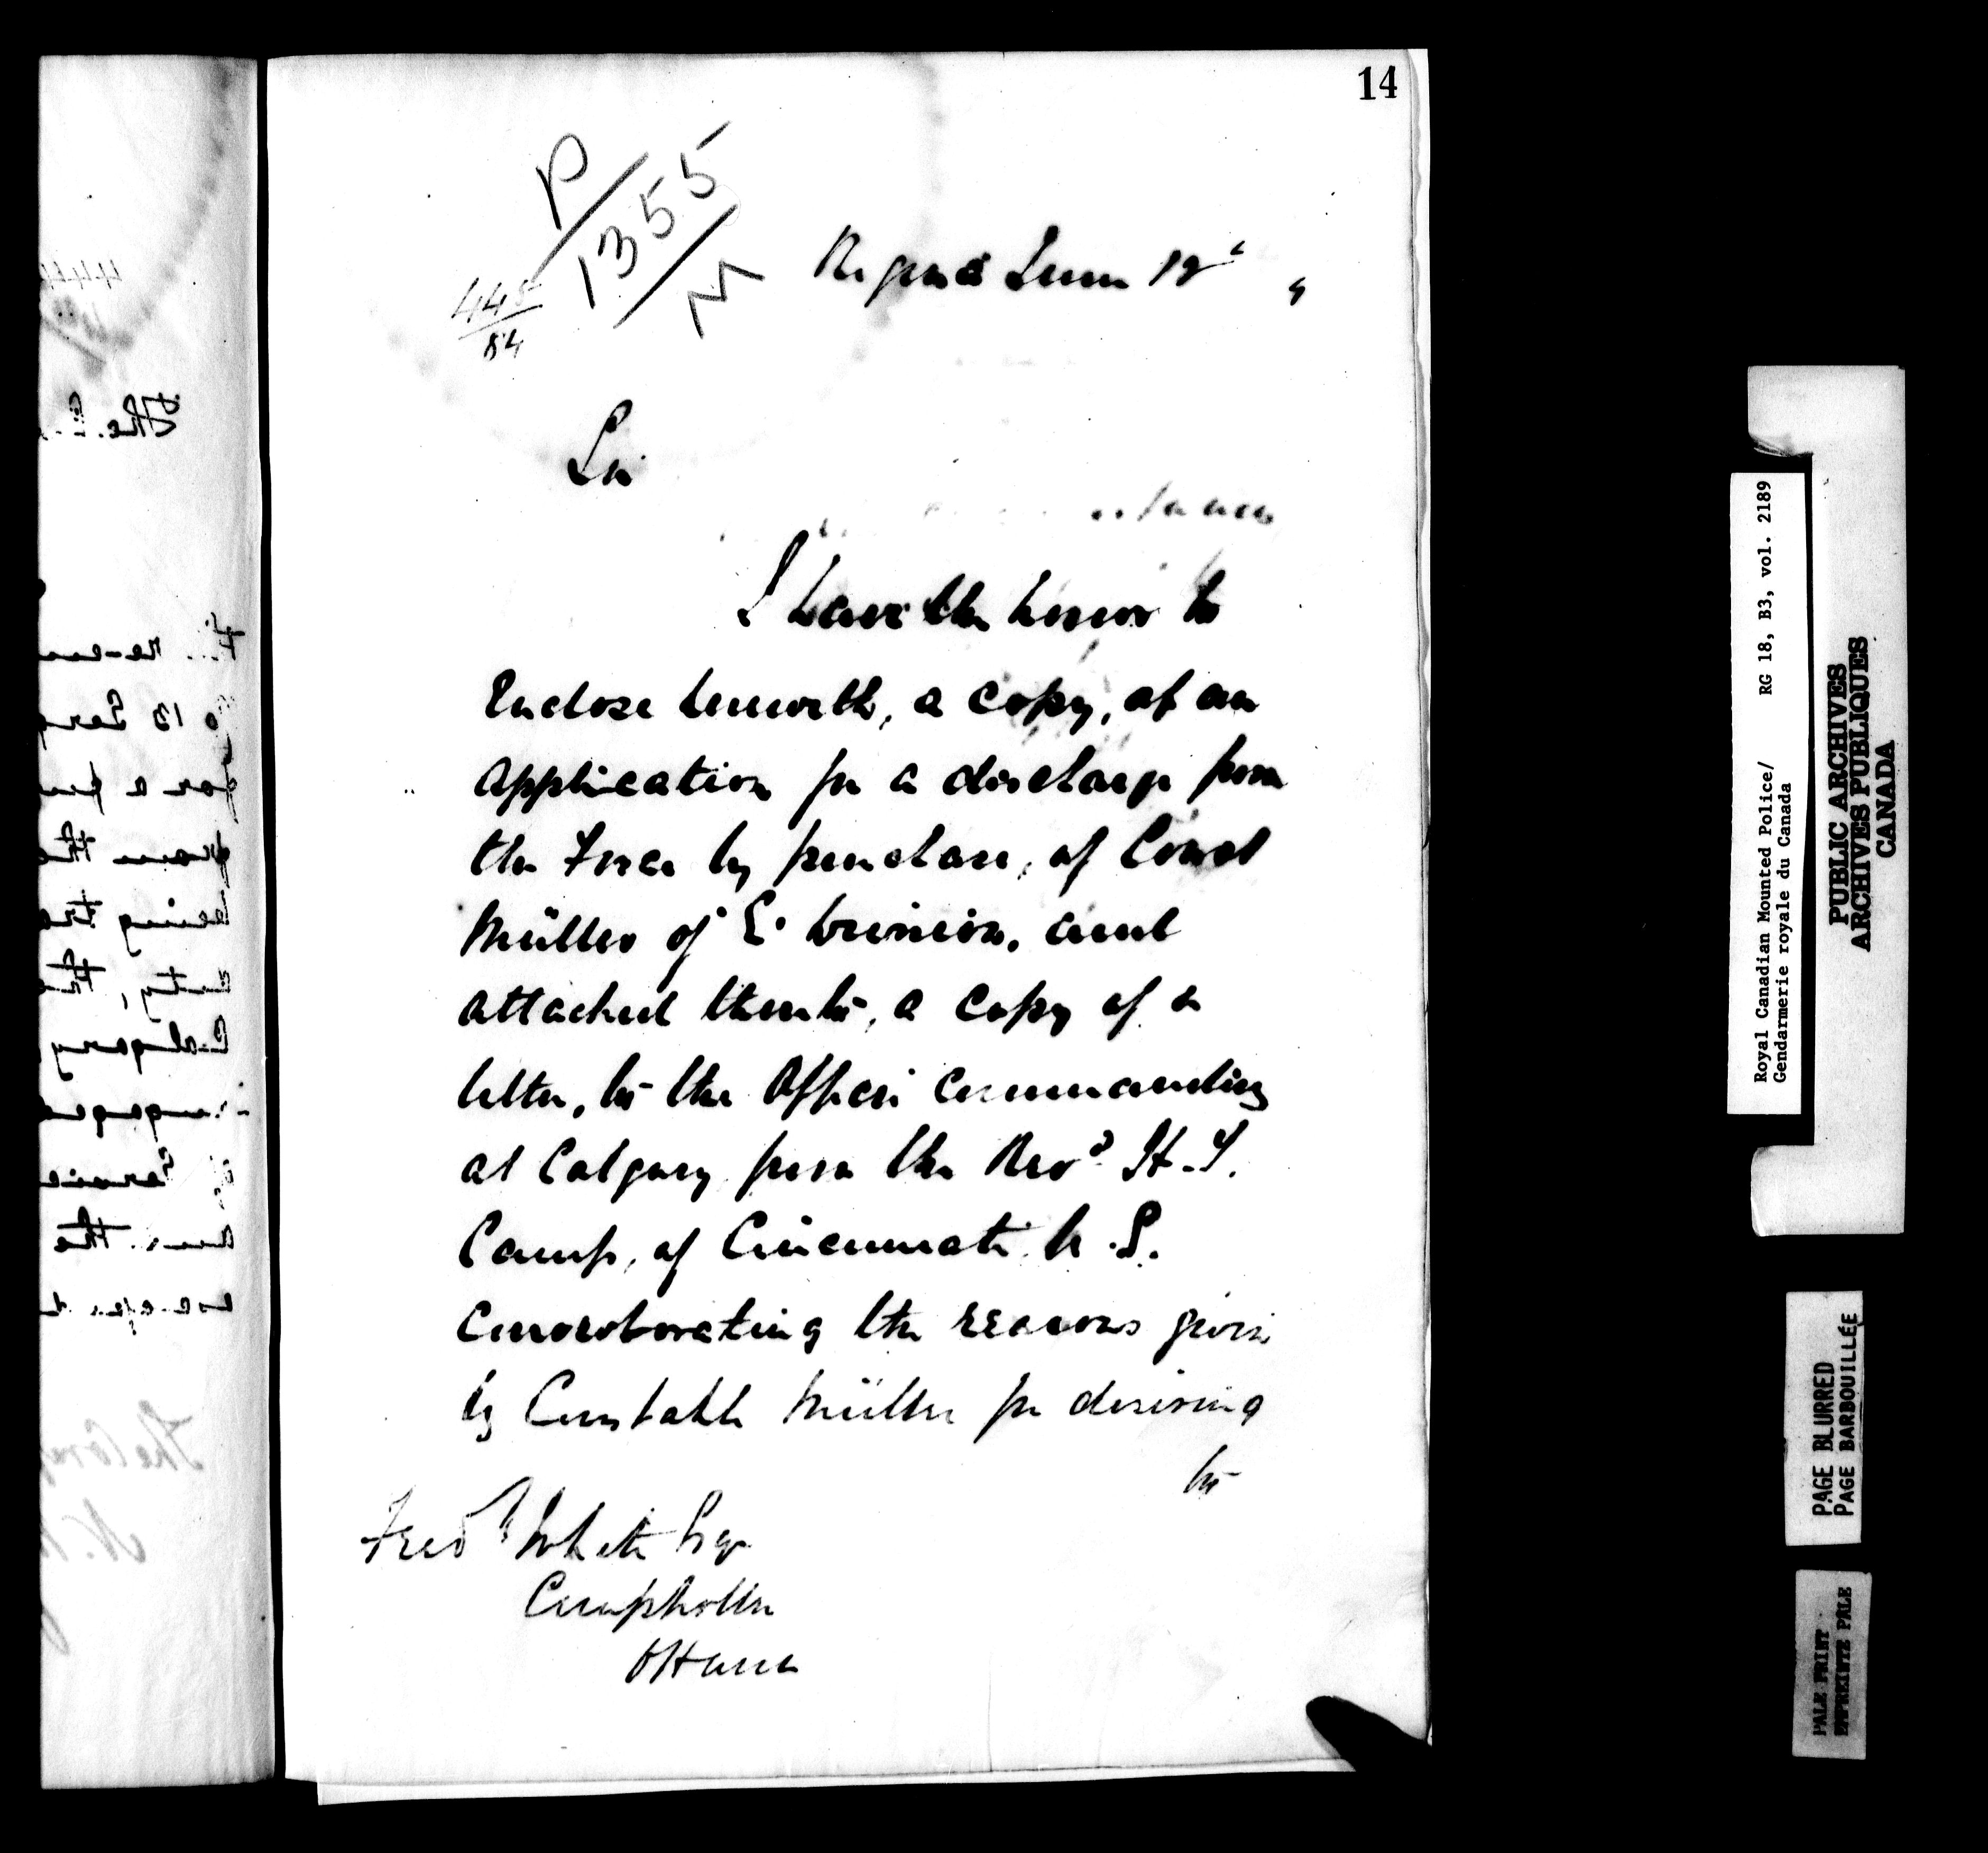 14
P
1355
M
445
84
Regina June 12
Sir
I have the honor to
Enclose herewith, a copy, of an
application for a discharge from
the Force by purchase, of Const
Müller of E. Division, and
attached thereto, a copy of a
letter, to the Officer Commanding
at Calgary from the Revd H.
Camp, of Cincinnati U.S.
Corroborating the reasons given
by Constable Müller for desiring
to
Fred White Esq
Comptroller
Ottawa
Royal Canadian Mounted Police/ RG 18, B3, vol. 2189
Gendarmerie royale du Canada
PUBLIC ARCHIVES
ARCHIVES PUBLIQUES
CANADA
PAGE BLURRED
PAGE BARBOUILLÉE
PALE PRINT
EMPREINTE PALE